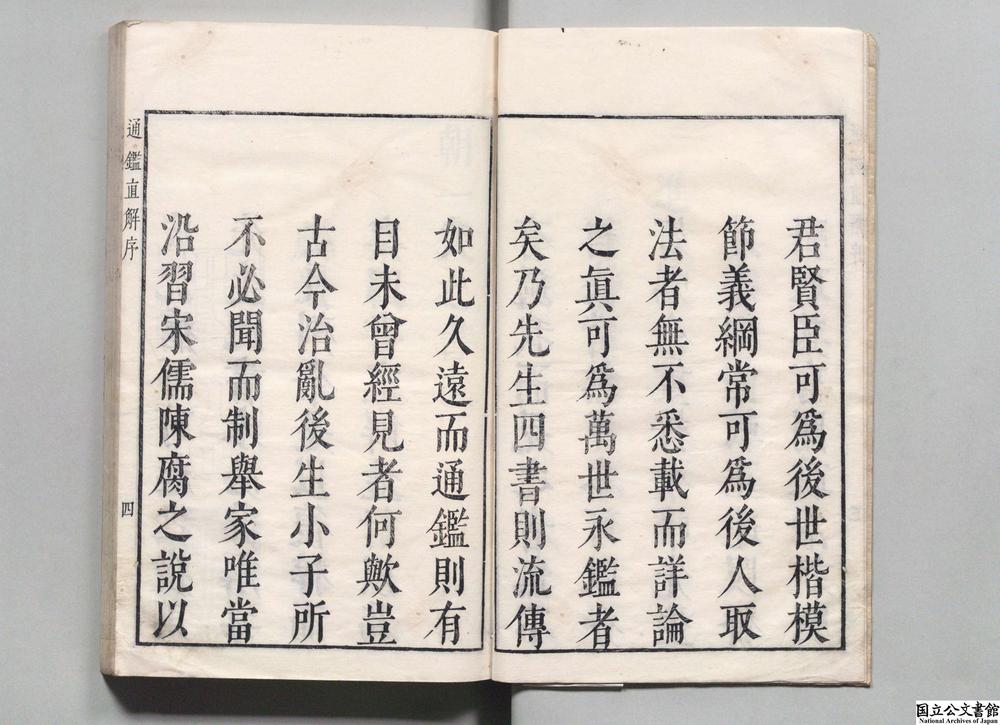 君賢臣可爲後世楷模
節義綱常可爲後人取
法者無不悉載而詳論
之眞可爲萬世永鑑者
矣乃先生四書則流傳
如此久遠而通鑑則有
目未曾經見者何歟豈
古今治亂後生小子所
不必聞而制舉家唯當
沿習宋儒陳腐之說以
通鑑直解序
四
国立公文書館
National Archives of Japan